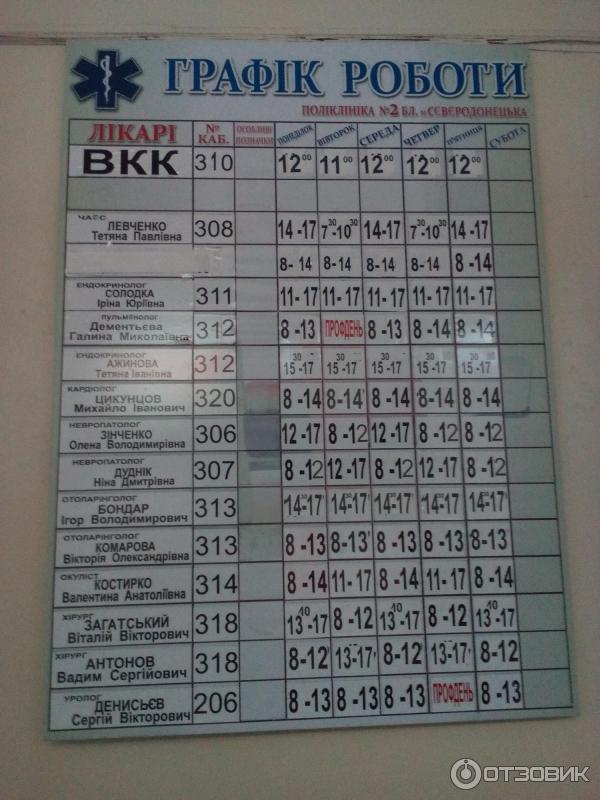 ГРАФІК РОБОТИ
ПОЛІКЛІНІКА №2 БЛ. м СЄВЄРОДОНЕЦЬКА
ЛІКАРІ № КАБ. ОСОБЛИВІ ПОЗНАЧКИ ПОНЕДІЛОК ВІВТОРОК СЕРЕДА ЧЕТВЕР П'ЯТНИЦЯ СУБОТА
ВКК 310 12 00 11 00 12 00 12 00 12 00
ЛЕВЧЕНКО
Тетяна Павлівна 308 14 -17 7 30-10 30 14-17 7 30-10 30 14 -17
8- 14 8-14 8-14 8-14 8 -14
ЕНДОКРИНОЛОГ
СОЛОДКА
Іріна Юріївна 311 11- 17 11- 17 11- 17 11- 17 11- 17
ПУЛЬМОНОЛОГ
Дементьєва
Галина Миколаївна 312 8 -13 ПРОФДЕНЬ 8 -13 8 -14 8 -14
ЕНДОКРИНОЛОГ
АЖИНОВА
Тетяна Іванівна 312 15 30-17 15 30-17 15 30-17 15 30-17 15 30-17
КАРДІОЛОГ
ЦИКУНЦОВ
Михайло Іванович 320 8 -14 8 -14 8 -14 8 -14 8 -14
НЕВРОПАТОЛОГ
ЗІНЧЕНКО
Олена Володимирівна 306 12 -17 8 -12 12 -17 8 -12 8 -12
НЕВРОПАТОЛОГ
ДУДНІК
Ніна Дмитрівна 307 8 -12 12 -17 8 -12 12 -17 8 -12
ОТОЛАРІНГОЛОГ
БОНДАР
Ігор Володимирович 313 14-17 14-17 14-17 14-17 14-17
ОТОЛАРІНГОЛОГ
КОМАРОВА
Вікторія Олександрівна 313 8 -13 8 -13 8 -13 8 -13 8-13
ОКУЛІСТ
КОСТИРКО
Валентина Анатоліївна 314 8 -14 11- 17 8 -14 11- 17 8 -14
ХІРУРГ
ЗАГАТСЬКИЙ
Віталій Вікторович 318 13 10-17 8 -12 13 10-17 8 -12 13 10-17
ХІРУРГ
АНТОНОВ
Вадим Сергійович 318 8-12 13-17 8-12 13-17 8-12
УРОЛОГ
ДЕНИСЬЄВ
Сергій Вікторович 206 8 -13 8 -13 8 -13 ПРОФДЕНЬ 8 -13
ОТЗОВИК